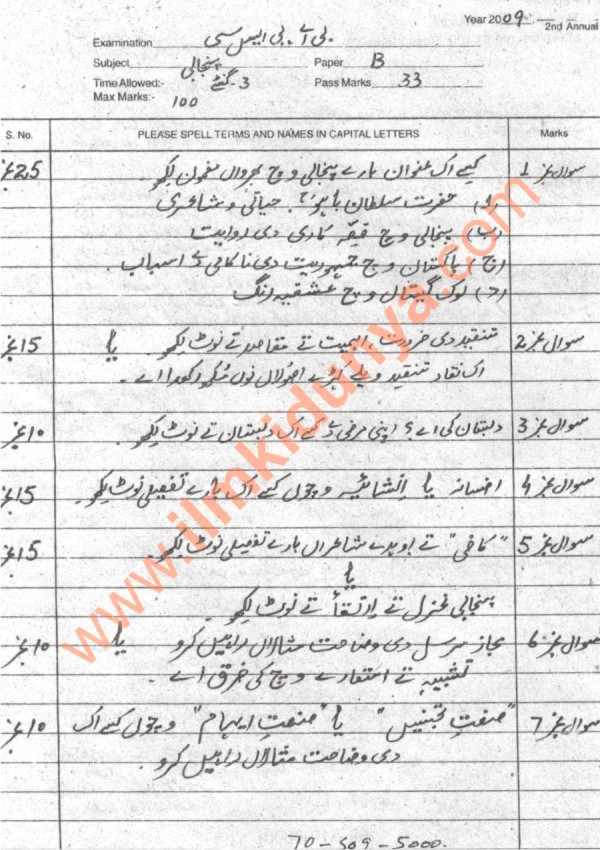 Year 2009
2nd Annual
Examination بی اے۔ بی ایس سی
Subject پنجابی Paper B
Time Allowed:- 3 گھنٹے Pass Marks 33
Max Marks:- 100
S. No. PLEASE SPELL TERMS AND NAMES IN CAPITAL LETTERS Marks
سوال نمبر 1 کسے اک عنوان بارے پنجابی وچ بھرواں مضمون لکھو۔ 25 نمبر
(ا) حضرت سلطان باہوؒ، حیاتی و شاعری
(ب) پنجابی وچ قصہ کاری دی روایت
(ج) پاکستان وچ جمہوریت دی ناکامی دے اسباب۔
(د) لوک گیتاں وچ عشقیہ رنگ
سوال نمبر 2 تنقید دی ضرورت، اہمیت تے مقاصد تے نوٹ لکھو۔ یا 15 نمبر
اک نقاد تنقید ویلے کیہڑے اصولاں نوں مُکھ رکھدا اے۔
سوال نمبر 3 دبستان کی اے؟ اپنی مرضی دے کسے اک دبستان تے نوٹ لکھو۔ 10 نمبر
سوال نمبر 4 افسانہ یا انشائیہ وچوں کسے اک بارے تفصیلی نوٹ لکھو۔ 15 نمبر
سوال نمبر 5 "کافی" تے اوہدے شاعراں بارے تفصیلی نوٹ لکھو۔ 15 نمبر
یا
پنجابی غزل تے ارتقأ تے نوٹ لکھو۔
سوال نمبر 6 مجاز مرسل دی وضاحت مثالاں راہیں کرو یا 10 نمبر
تشبیہہ تے استعارے وچ کی فرق اے۔
سوال نمبر 7 "صنعتِ تجنیس" یا "صنعتِ ایہام" وچوں کسے اک 10 نمبر
دی وضاحت مثالاں راہیں کرو۔
70-509-5000.
www.ilmkidunya.com